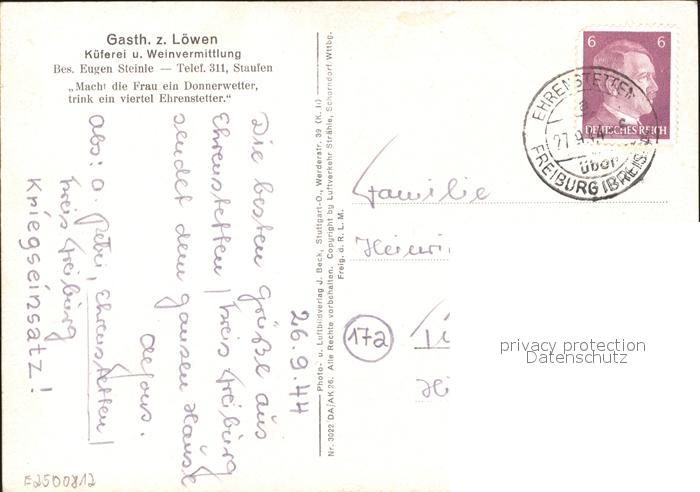 Gasth. z. Löwen
Küferei u. Weinvermittlung
Bes. Eugen Steinle — Telef. 311, Staufen
„Macht die Frau ein Donnerwetter,
trink ein viertel Ehrenstetter.“
26.9.44
Die besten Grüße aus
Ehrenstetten / Kreis Freiburg
sendet dem ganzen Hause
Abs: O. Petri, Ehrenstetten /
Kreis Freiburg
Kriegseinsatz!
Photo- u. Luftbildverlag J. Beck, Stuttgart-O., Werderstr. 39 (K. I:)
Nr. 3022 DA/AK 26. Alle Rechte vorbehalten. Copyright by Luftverkehr Strähle, Schorndorf-Wttbg.
Freig. d. R. L. M.
6 6
DEUTSCHES REICH
EHRENSTETTEN
27.9.
über
FREIBURG (BREISGAU)
Familie
Heinri
17a
privacy protection
Datenschutz
E2500812